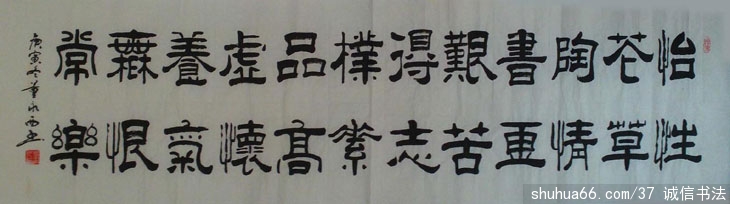 怡性
花草
陶情
書画
艱苦
得志
樸素
品高
虛懷
養氣
無恨
常樂
庚寅冬
shuhua66.com/37 诚信书法